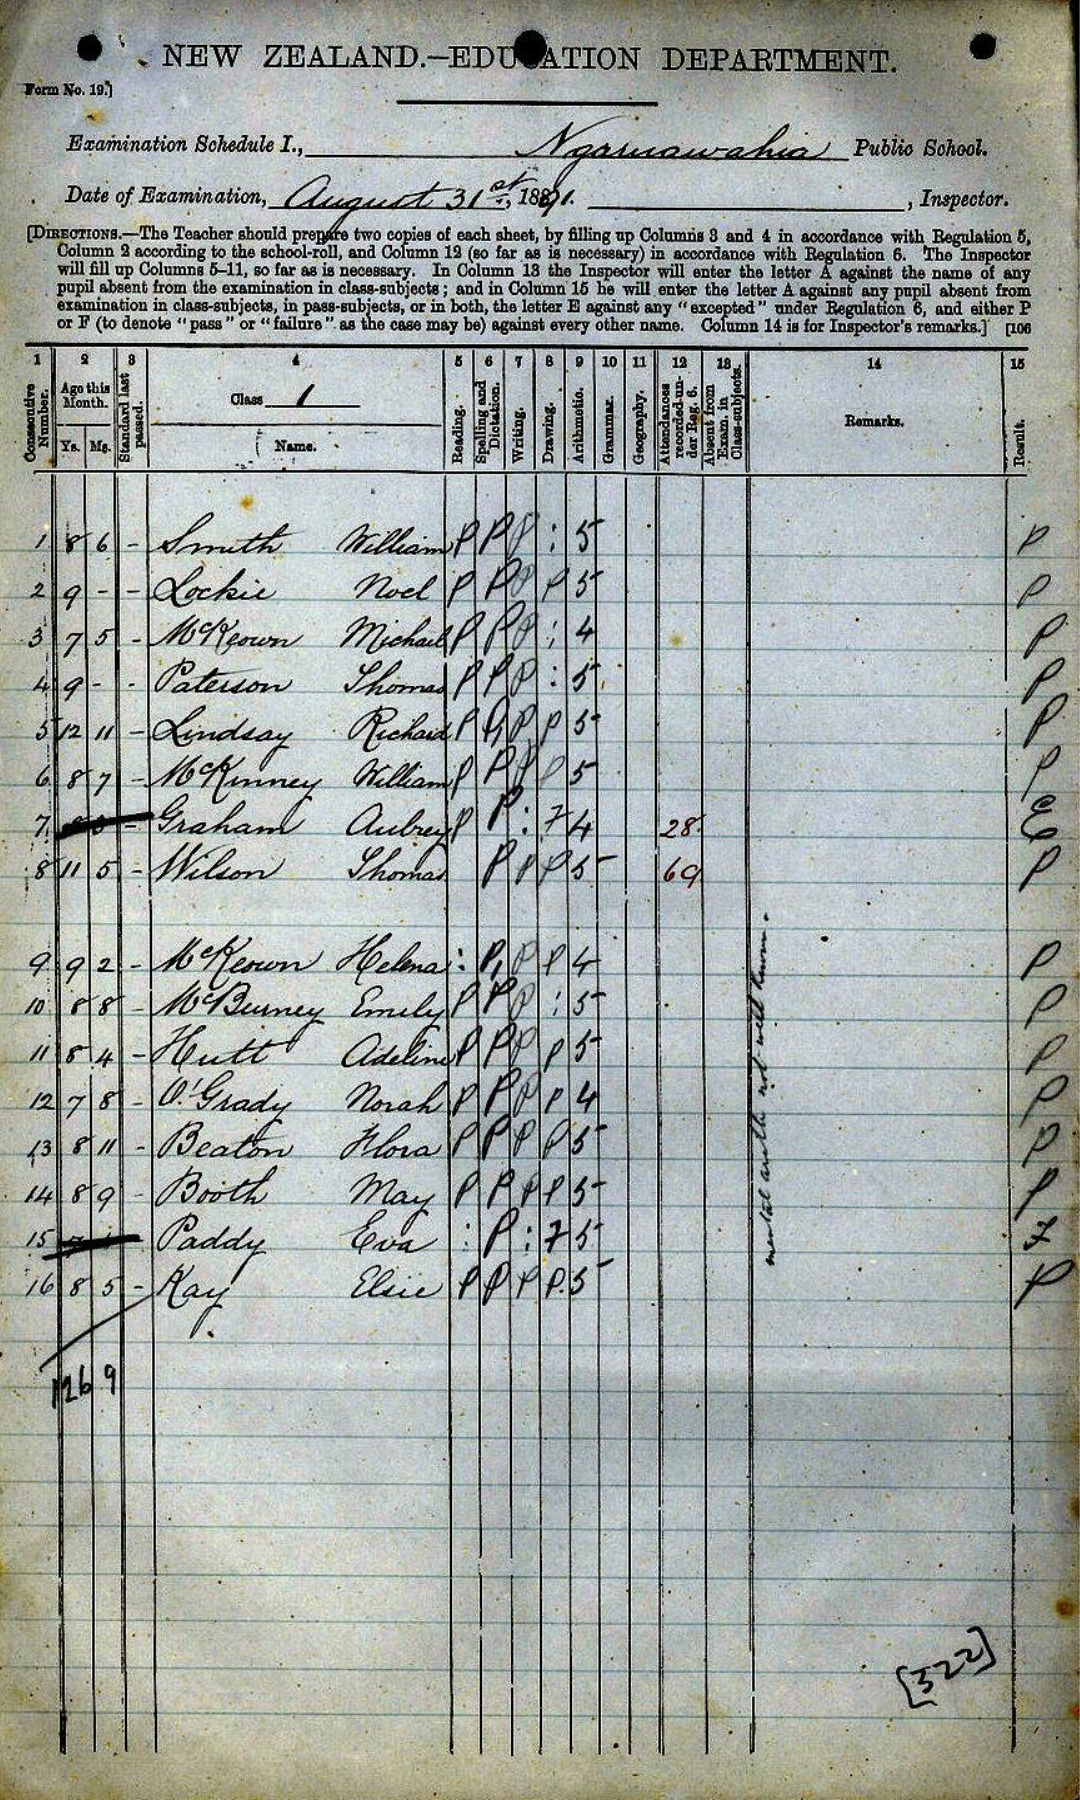 NEW ZEALAND.—EDUCATION DEPARTMENT.
Form No. 19.]
Examination Schedule I., Ngaruawahia Public School.
Date of Examination, August 31st, 1891. , Inspector.
[DIRECTIONS.—The Teacher should prepare two copies of each sheet, by filling up Columns 3 and 4 in accordance with Regulation 5,
Column 2 according to the school-roll, and Column 12 (so far as is necessary) in accordance with Regulation 6. The Inspector
will fill up Columns 5–11, so far as is necessary. In Column 13 the Inspector will enter the letter A against the name of any
pupil absent from the examination in class-subjects; and in Column 15 he will enter the letter A against any pupil absent from
examination in class-subjects, in pass-subjects, or in both, the letter E against any "excepted" under Regulation 6, and either P
or F (to denote "pass" or "failure" as the case may be) against every other name. Column 14 is for Inspector's remarks.] [106
1 2 3 4 5 6 7 8 9 10 11 12 13 14 15
Consecutive Number. Age this Month. Ys. Ms. Standard last passed. Class 1 Name. Reading. Spelling and Dictation. Writing. Drawing. Arithmetic. Grammar. Geography. Attendances recorded under Reg. 6. Absent from Exam. in Class-subjects. Remarks. Result.
1 8 6 - Smith William P P P : 5 P
2 9 - - Lockie Noel P P P P 5 P
3 7 5 - McKeown Michael P P P : 4 P
4 9 - - Paterson Thomas P P P : 5 P
5 12 11 - Lindsay Richard P P, P P 5 P
6 8 7 - McKinney William P P P P 5 P
7 - Graham Aubrey P P : 7 4 28 E
8 11 5 - Wilson Thomas P P P 5 69 P
9 9 2 - McKeown Helena : P, P P 4 P
10 8 8 - McBurney Emily P P P : 5 P
11 8 4 - Hutt Adeline P P P P 5 P
12 7 8 - O'Grady Norah P P P P 4 P
13 8 11 - Beaton Flora P P P P 5 P
14 8 9 - Booth May P P P P 5 P
15 Paddy Eva : P : 7 5 F
16 8 5 - Kay Elsie P P P P. 5 P
126 9
mental arith not well known.
[322]